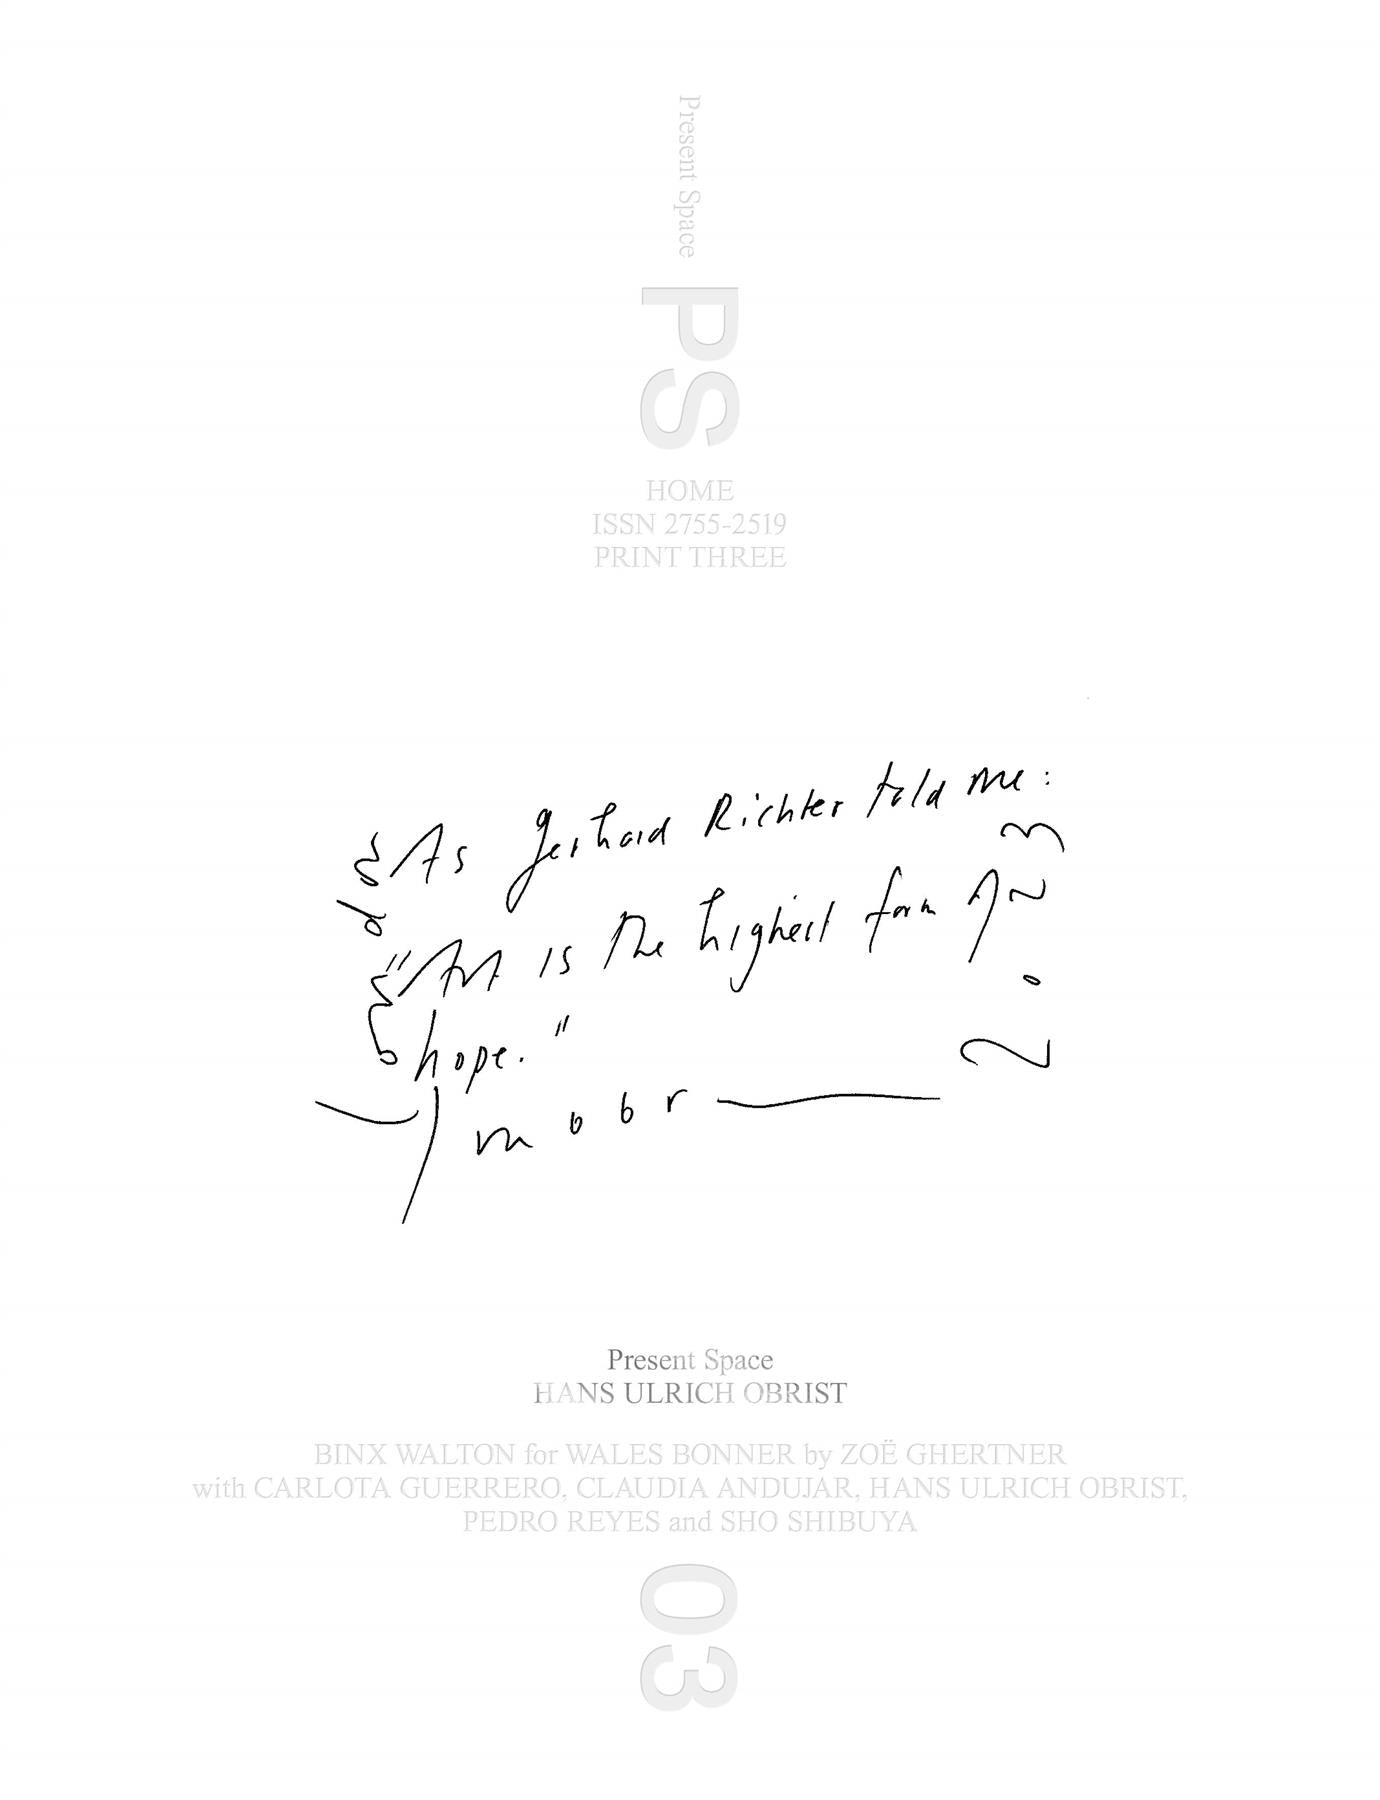 Present Space
PS
HOME
ISSN 2755-2519
PRINT THREE
As Gerhard Richter told me:
"Art is the highest form of
hope."
2023
Present Space
HANS ULRICH OBRIST
BINX WALTON for WALES BONNER by ZOË GHERTNER
with CARLOTA GUERRERO, CLAUDIA ANDUJAR, HANS ULRICH OBRIST,
PEDRO REYES and SHO SHIBUYA
03